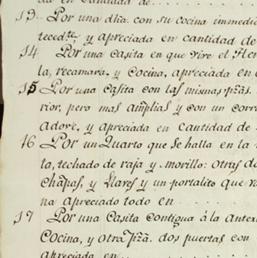 en Cantidad de
13 Por una dha. con su cocina immedi
tecedte. y apreciada en cantidad de
14 Por una Casita en que vive el Her
la, recamara, y Cocina, apreciada en C
15 Por una Casita con las mismas pzas.
rior, pero mas amplias y con un corr
Adove, y apreciada en cantidad de
16 Por un Quarto que se halla en la
la, techado de raja y morillo: otras d
chapas, y Llaves y un portalito que
na apreciado todo en
17 Por una Casita contigua á la Anter
Cocina, y otra pza. dos puertas con
apreciada en